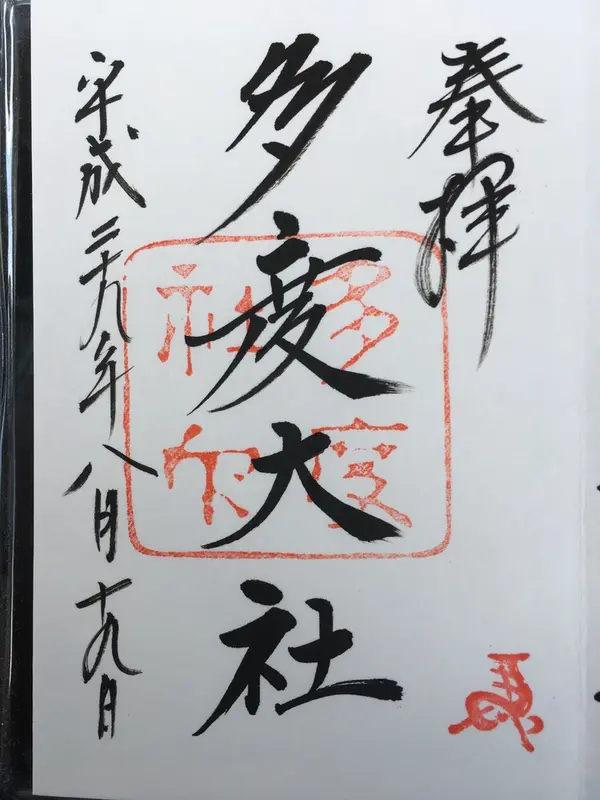 奉拝
多度大社
平成二十九年八月十九日
多度
社印
馬